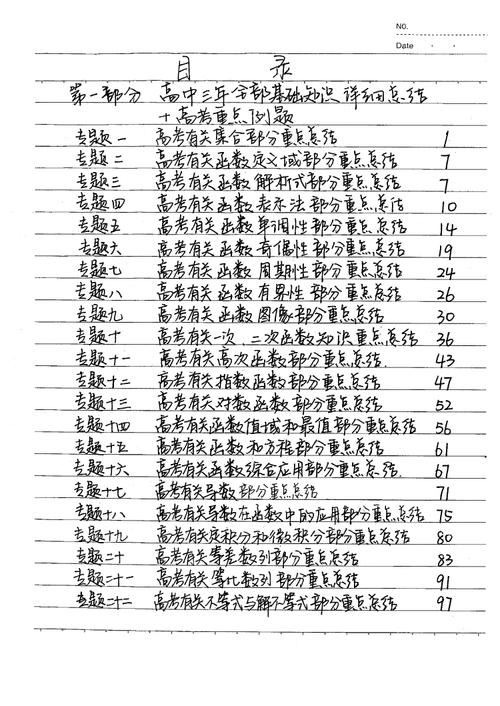 No.
Date
目 录
第一部分 高中三年全部基础知识详细总结
+高考重点例题
专题一 高考有关集合部分重点总结 1
专题二 高考有关函数定义域部分重点总结 7
专题三 高考有关函数解析式部分重点总结 7
专题四 高考有关函数表示法部分重点总结 10
专题五 高考有关函数单调性部分重点总结 14
专题六 高考有关函数奇偶性部分重点总结 19
专题七 高考有关函数周期性部分重点总结 24
专题八 高考有关函数有界性部分重点总结 26
专题九 高考有关函数图像部分重点总结 30
专题十 高考有关一次、二次函数知识重点总结 36
专题十一 高考有关高次函数部分重点总结. 43
专题十二 高考有关指数函数部分重点总结 47
专题十三 高考有关对数函数部分重点总结 52
专题十四 高考有关函数值域和最值部分重点总结 56
专题十五 高考有关函数和方程部分重点总结 61
专题十六 高考有关函数综合应用部分重点总结. 67
专题十七 高考有关导数部分重点总结 71
专题十八 高考有关导数在函数中的应用部分重点总结 75
专题十九 高考有关定积分和微积分部分重点总结 80
专题二十 高考有关等差数列部分重点总结 83
专题二十一 高考有关等比数列部分重点总结 91
专题二十二 高考有关不等式与解不等式部分重点总结 97